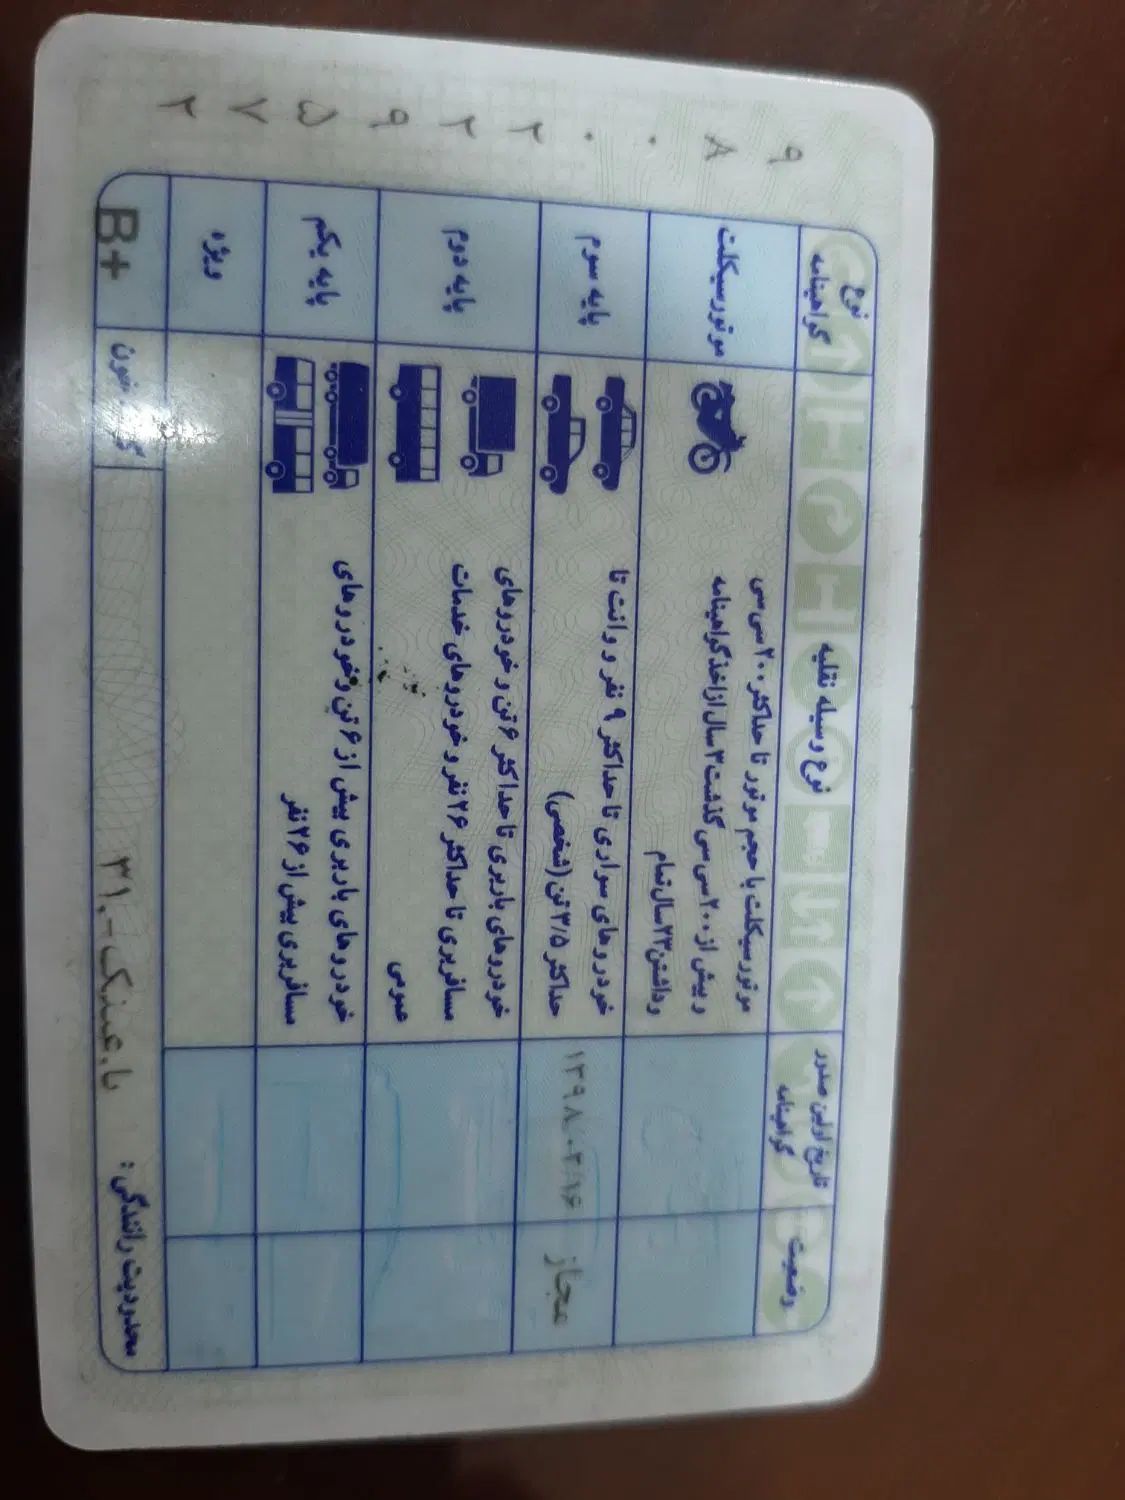 نوع گواهینامه
نوع وسیله نقلیه
تاریخ اولین صدور گواهینامه
وضعیت
موتورسیکلت
موتورسیکلت با حجم موتور تا حداکثر ۲۰۰ سی سی
و بیش از ۲۰۰ سی سی گذشت ۳ سال از اخذ گواهینامه
و داشتن ۲۳ سال تمام
پایه سوم
خودروهای سواری تا حداکثر ۹ نفر و وانت تا
حداکثر ۳/۵ تن (شخصی)
مجاز
پایه دوم
خودروهای باربری تا حداکثر ۶ تن و خودروهای
مسافربری تا حداکثر ۲۶ نفر و خودروهای خدمات
عمومی
پایه یکم
خودروهای باربری بیش از ۶ تن و خودروهای
مسافربری بیش از ۲۶ نفر
ویژه
محدودیت رانندگی: با عینک
گروه خون B+
۹۸۰۰۲۲۹۵۷۲